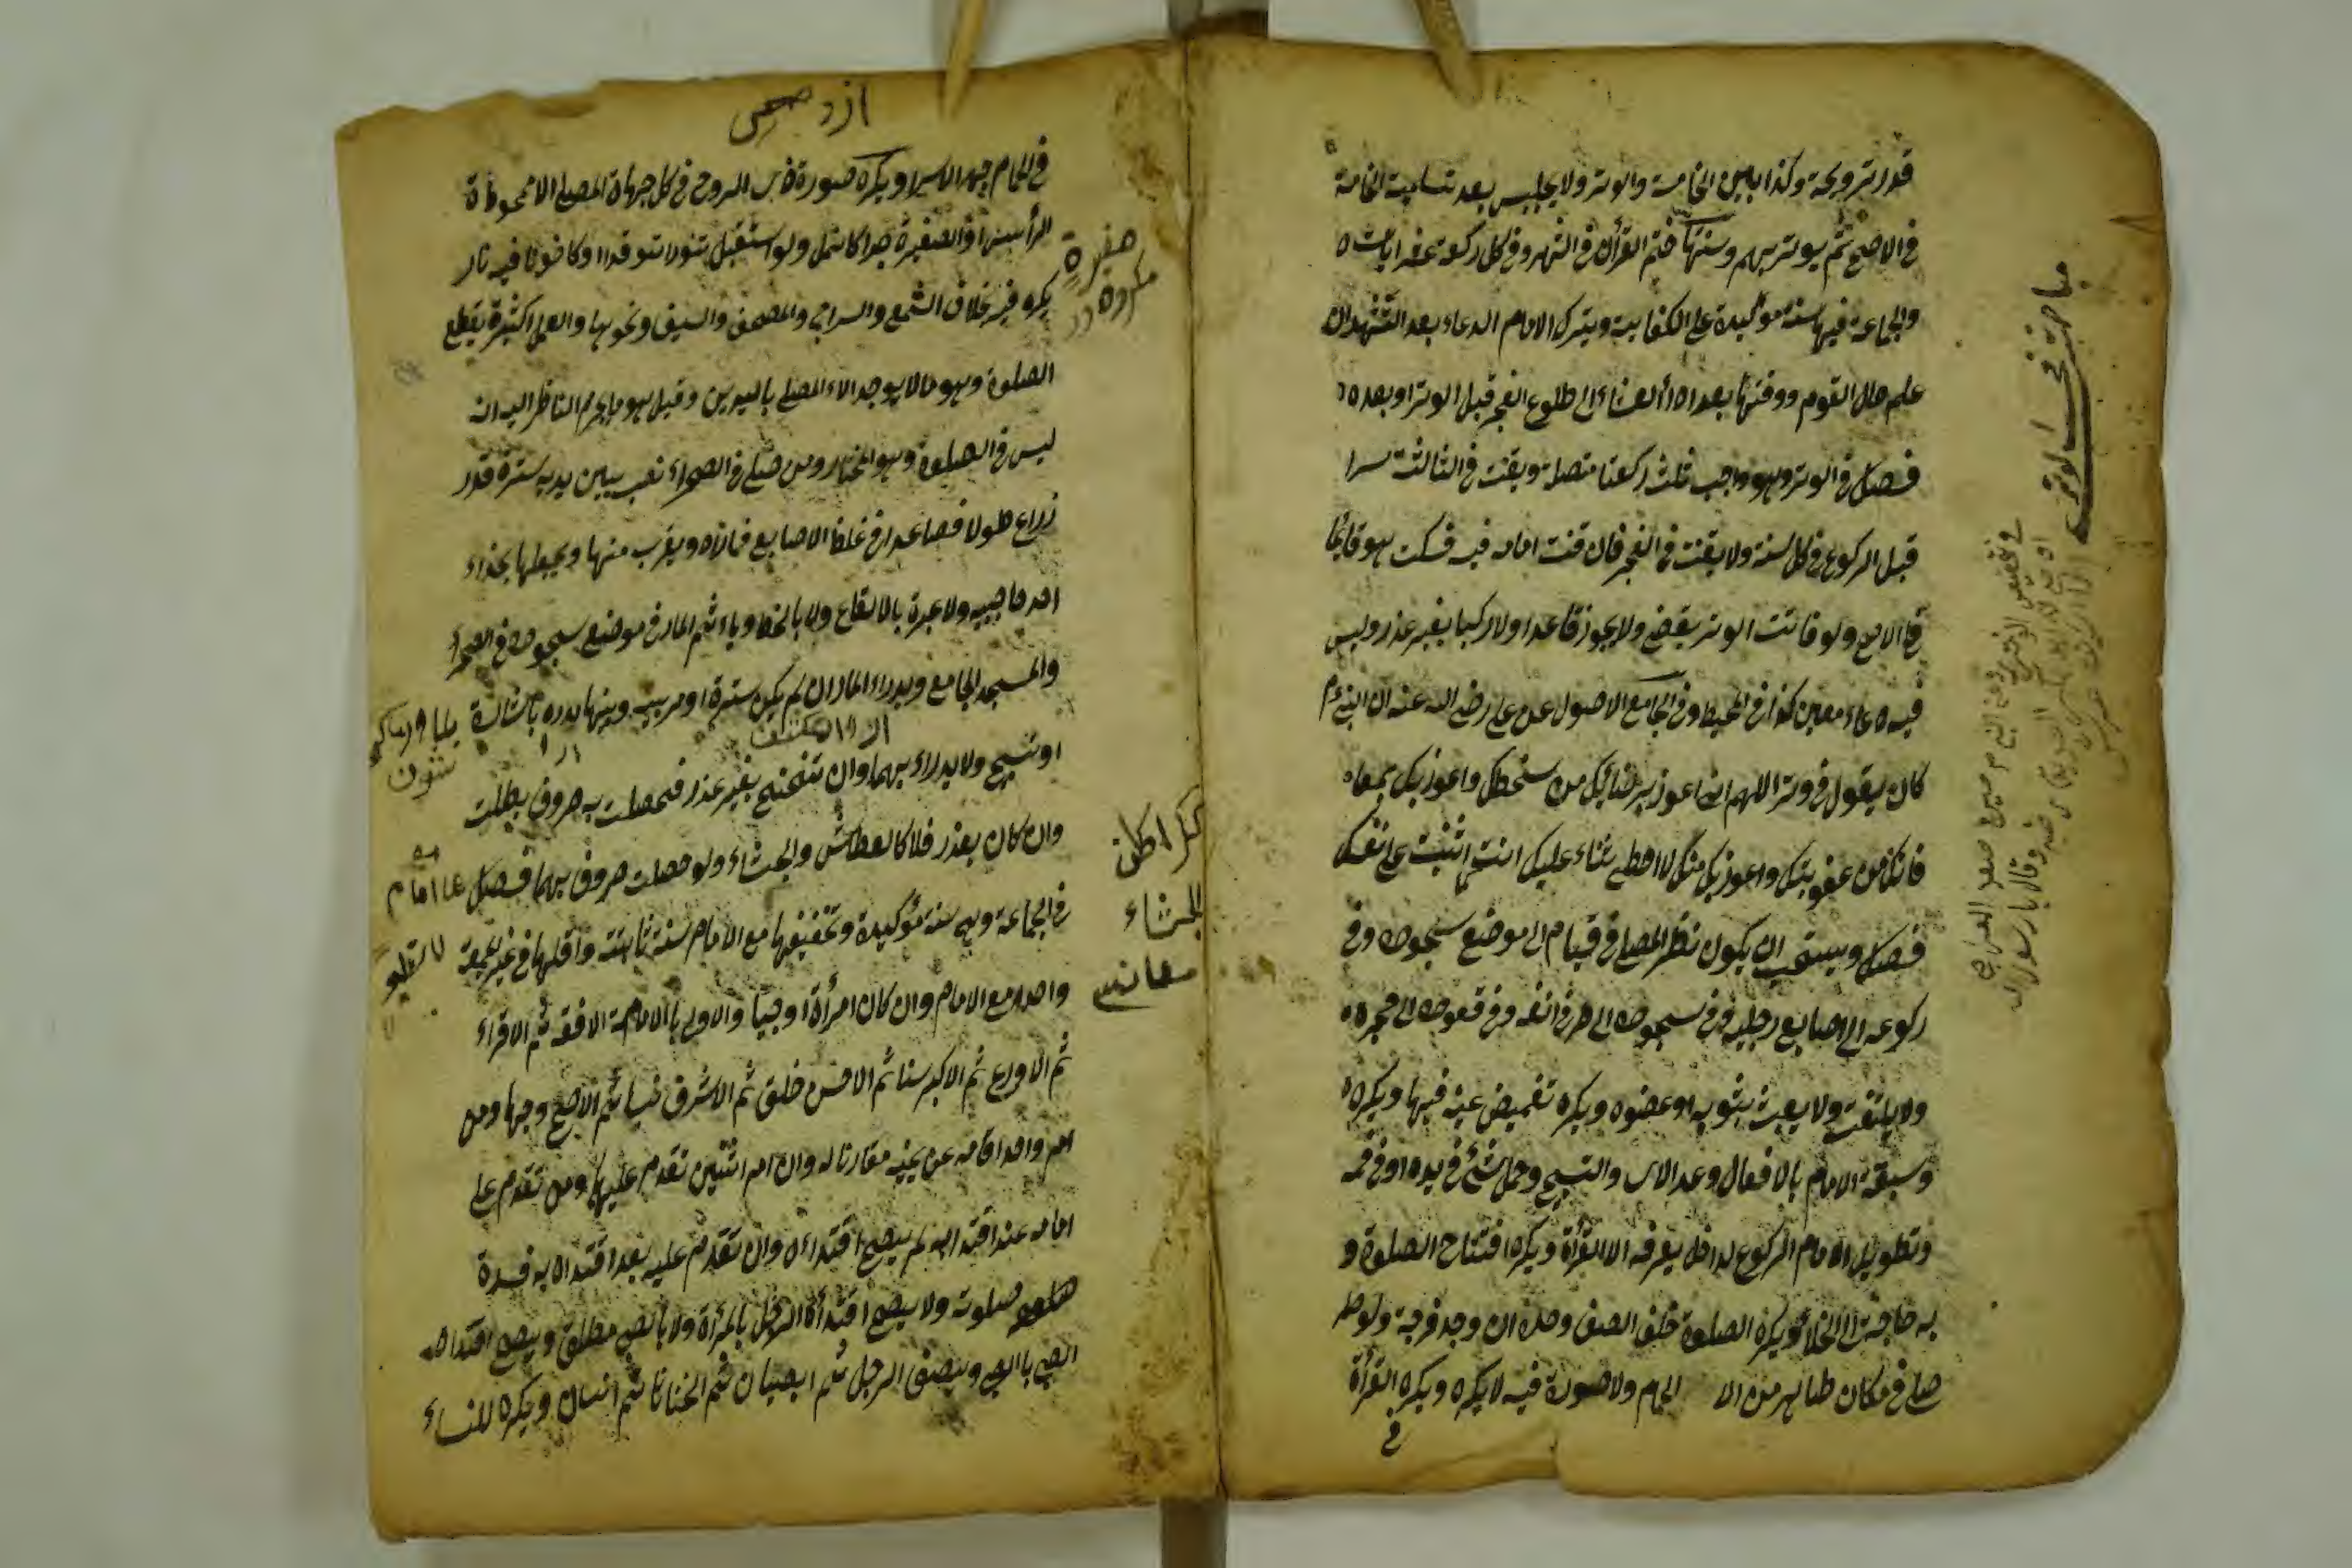 قدر ترويحة وكذا بين الخامسة والوتر ولا يجلس بعد تسليمة الخامسة
في الاصح ثم يوتر بهم وسنتها ختم القرأن في الشهر وفي كل ركعة عشر ايات
والجماعة فيها سنة موكيدة على الكفاية ويترك الامام الدعاء بعد التشهد ان
علم ملال القوم ووقتها بعد اداء العشاء الى طلوع الفجر قبل الوتر او بعده
فصل في الوتر وهو واجب ثلث ركعات متصلة ويقنت في الثالثة سرا
قبل الركوع في كل سنة ولا يقنت في الفجر فان قنت امامه فيه فسكت هو قائما
في الاصح ولو فاتت الوتر يقضى ولا يجوز قاعدا ولا راكبا بغير عذر وليس
فيه دعاء معين كذا في المحيط وفي الجامع الاصول عن علي رضي الله عنه ان النبي م
كان يقول في وتر اللهم اني اعوذ برضائك من سخطك واعوذ بك بمعا
فاتك من عقوبتك واعوذ بك منك لا احطى ثناء عليك انت كما اثنيت على نفسك
فصل ويستحب ان يكون نظر المصلي في قيام الى موضع سجوده وفي
ركوعه الى اصابع رجليه وفي سجوده الى طرف انفه وفي قعوده الى حجره
ولا يلتفت ولا يعبث بثوبه او عضوه ويكره تغميض عينه فيها ويكره
وسبقة الامام بالافعال وعد الاى والتسبيح وحمل شئ في يده او في فمه
وتطويل الامام الركوع لداخل يعرفه الا القرأة ويكره افتتاح الصلوة و
به حاجة الى الخلاء ويكره الصلوة خلف الصف وحده ان وجد فرجة ولو
صلى في مكان طاهر من الا الحمام ولا صورة فيه لا يكره ويكره القرأة
في
مباحثة في الوتر
في الحمام جهرا لا سرا ويكره صورة ذى الروح في كل جهاة المصلي الا ممحوة
الرأس او الصغيرة جدا كالنمل ولو استقبل تنورا متوقدا او كانونا فيه نار
يكره فيه خلاف الشمع والسراج والمصحف والسيف ونحوها والعمل الكثيرة يقطع
الصلوة وهو ما لا يوجد الاء المصلي باليدين وقيل هو ما يجزم الناظر اليه انه
ليس في الصلوة وهو المختار ومن صلى في الصحراء نصب بين يديه سترة قدر
ذراع طولا فصاعدا في غلظ الاصابع فما زاد ويقرب منها ويجعلها بحذاء
احد حاجبيه ولا عبرة بالالقاء ولا بالخط وياءثم المار في موضع سجوده في الصحراء
والمسجد الجامع ويدراء المار ان لم يكن سترة او مر بينه وبينها يدره باشارة
او تسبيح ولا يدراء بهما وان تنحنح بغير عذر فحصلت به حروف بطلت
وان كان بعذر فلا كالعطاس والجشاء ولو حصلت حروف بهما فصل
في الجماعة وهي سنة مؤكيدة وتخفيفها مع الامام سنة ثابتة واقلها في غير الجمعة
واحد مع الامام وان كان امرأة او صبيا والاولى بالامامة الافقه ثم الاقراء
ثم الاورع ثم الاكبر سنا ثم الاحسن خلق ثم الاشرف نسبا ثم الاصبح وجها ومن
ام واحدا قامه عن يمينه مقارنا له وان ام اثنين تقدم عليهما ومن تقدم على
امامه عند اقتدائه لم يصح اقتداءه وان تقدم عليه بعد اقتدائه به فسدة
صلوته ولا يصح اقتداءة الرجل بالمرأة ولا بالصبي مطلق ويصح اقتداء
الصبي بالصبي ويصف الرجل ثم الصبيان ثم الخناثا ثم النساء ويكره للنساء
صغيرة
مكروه
الجشاء